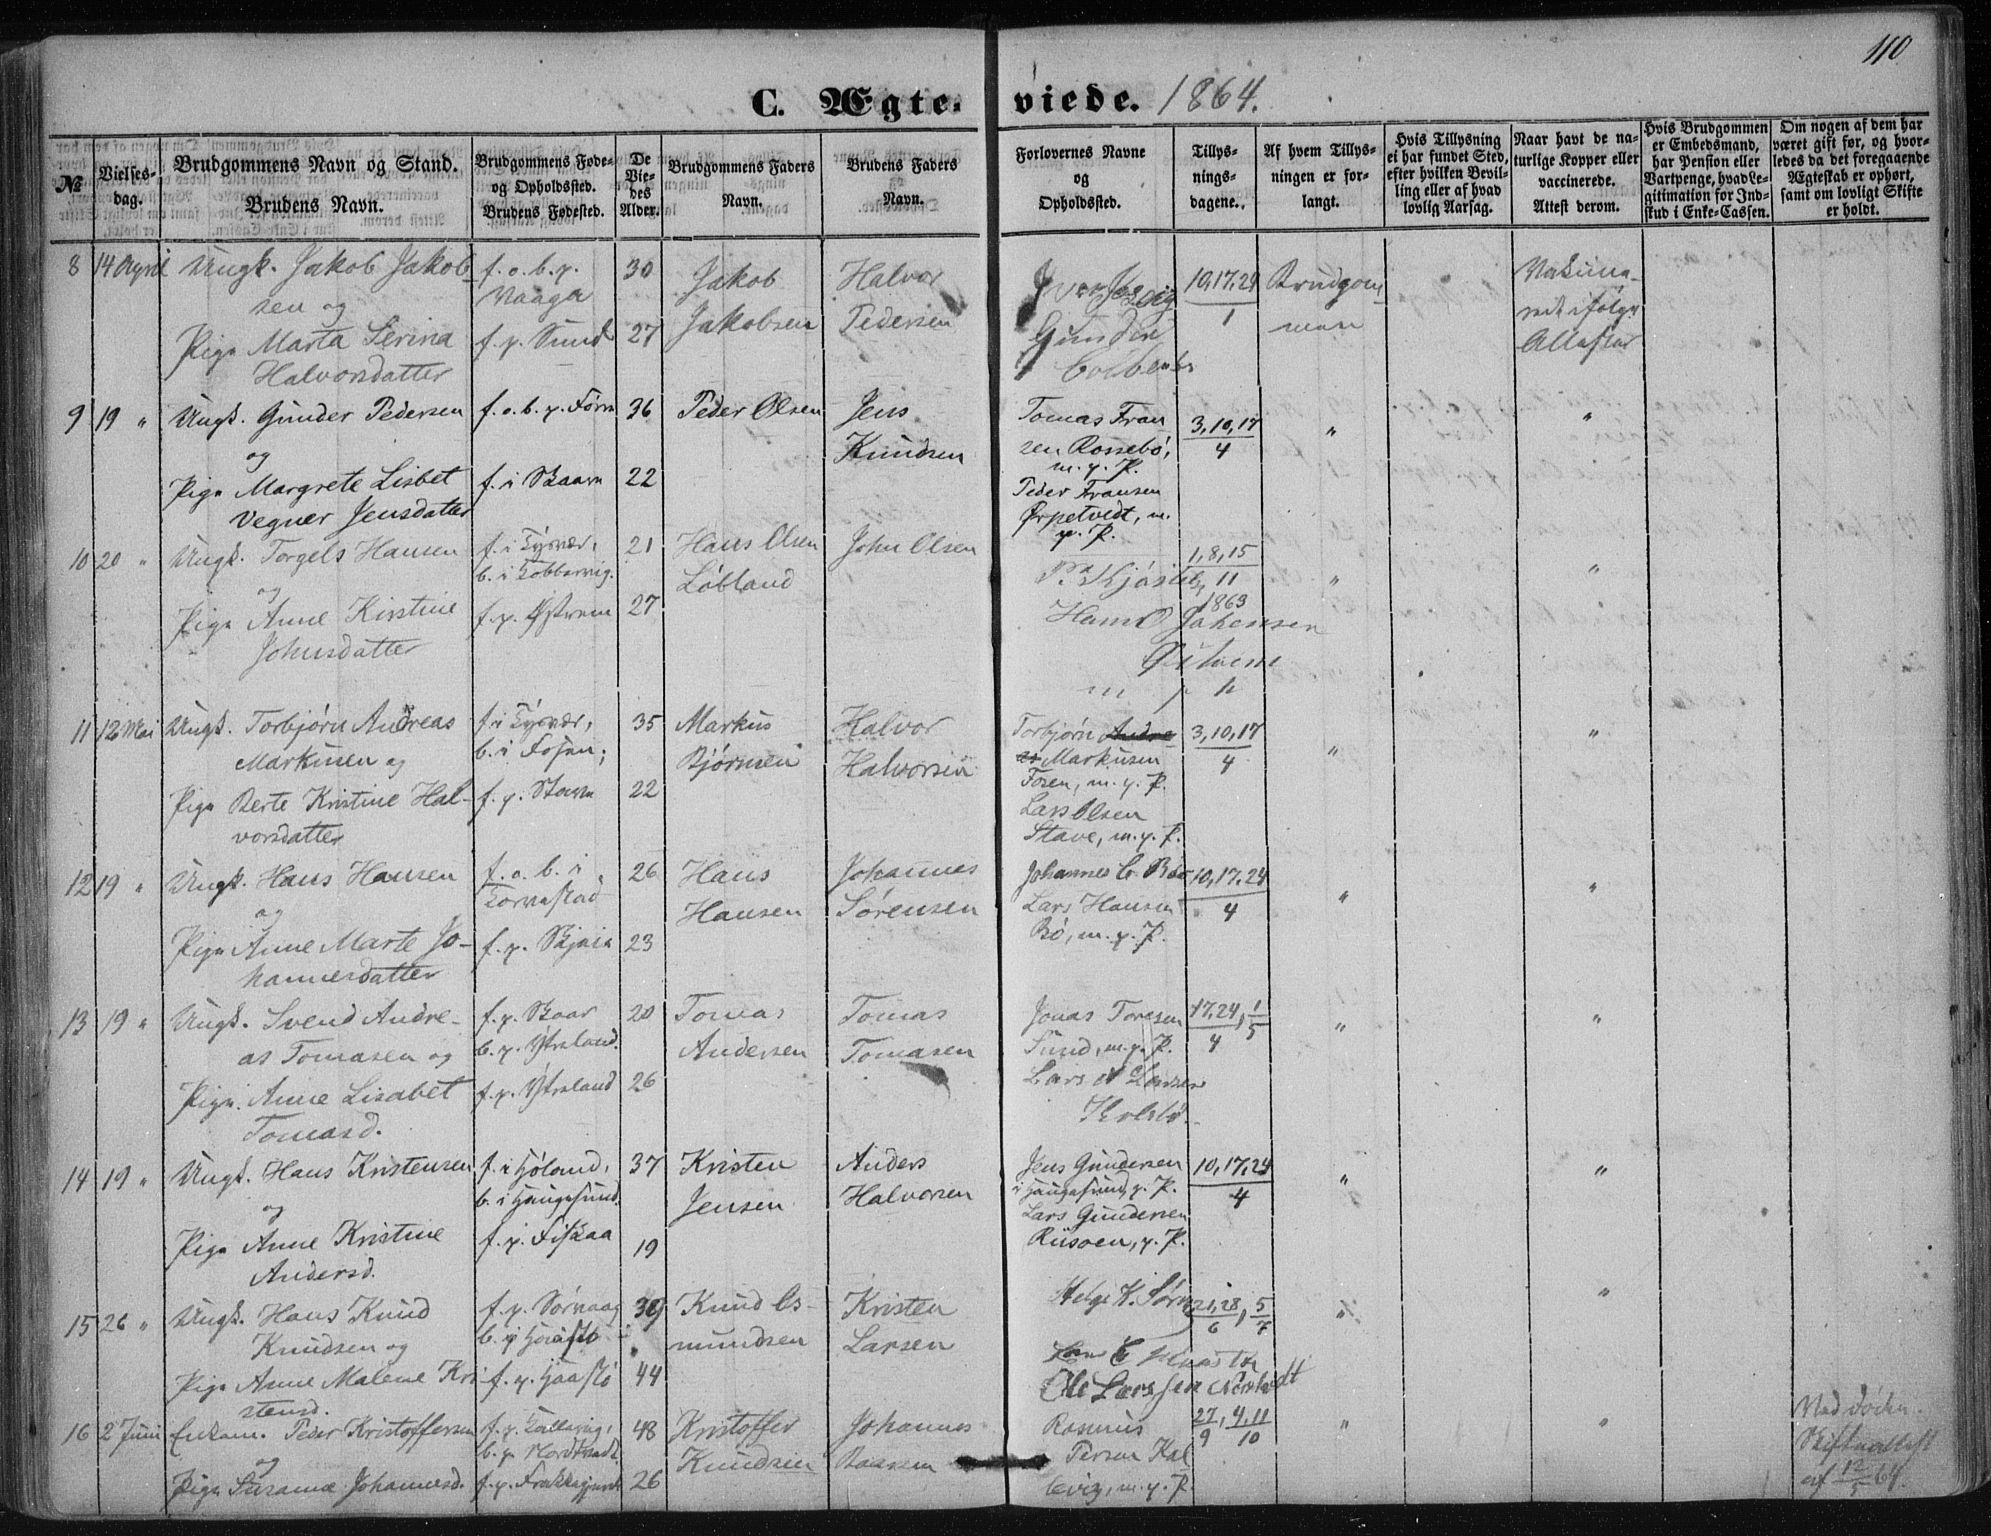 110
C. Ægteviede. 1864.
№
Vielses-
dag.
Brudgommens Navn og Stand.
Brudens Navn.
Brudgommens Føde-
og Opholdssted.
Brudens Fødested.
De
Vie-
des
Alder.
Brudgommens Faders
Navn.
Brudens Faders
Navn.
Forlovernes Navne
og
Opholdssted.
Tillys-
nings-
dagene.
Af hvem Tillys-
ningen er for-
langt.
Hvis Tillysning
ei har fundet Sted,
efter hvilken Bevil-
ling eller af hvad
lovlig Aarsag.
Naar havt de na-
turlige Kopper eller
vaccinerede.
Attest derom.
Hvis Brudgommen
er Embedsmand,
har Pension eller
Vartpenge, hvad Le-
gitimation for Ind-
skud i Enke-Cassen.
Om nogen af dem har
været gift før, og hvor-
ledes da det foregaaende
Ægteskab er ophørt,
samt om lovligt Skifte
er holdt.
8 14 April Ungk. Jakob Jakob-
sen og
Pige Marta Serina
Halvorsdatter
f. o. b. p.
Vaaga
f. p. Sund
30
27
Jakob
Jakobsen
Halvor
Pedersen
Gunder
10, 17, 24
1
Brudgom
men
Vaksine-
redt ifølge
Attester
9 19 " Ungk. Gunder Pedersen
og
Pige Margrete Lisbet
Vegner Jensdatter
f. o. b. p. Førre
f. i Skaare
36
22
Peder Olsen
Jens
Knudsen
Tomas Fran
sen Rossebø,
m. p. P.
Peder Fransen
Ørpetvedt, m.
p. P.
3, 10, 17
4
" "
10 20 " Ungk. Torgels Hansen
og
Pige Anne Kirstine
Johnsdatter
f. i Tysvær,
b. i Kobbervig.
f. p. Østrem
21
27
Hans Olsen
Løbland
John Olsen
Hans O Johensen
m p P
1, 8, 15
11
1863
" "
11 12 Mai Ungk. Torbjørn Andreas
Markusen og
Pige Berte Kristine Hal-
vorsdatter
f. i Tysvær,
b. i Fosen;
f. p. Stave
35
22
Markus
Bjørnsen
Halvor
Halvorsen
Torbjørn Andre
as Markusen
Fosen, m. p. P.
Lars Olsen
Stave, m. p. P.
3, 10, 17
4
" "
12 19 " Ungk. Hans Hansen
og
Pige Anne Marte Jo-
hannesdatter
f. o. b. i
Torvestad
f. p.
26
23
Hans
Hansen
Johannes
Sørensen
Johannes
Lars Hansen
Bø, m. p. P.
10, 17, 24
4
" "
13 19 " Ungk. Svend Andre-
as Tomasen og
Pige. Anne Lisabet
Tomasd.
f. p. Skaar
b. p. Ytreland.
f. p. Ytreland
20
26
Tomas
Andersen
Tomas
Tomasen
Jonas Toresen
Sund, m. p. P.
Lars
17, 24, 1
4 5
" "
14 19 " Ungk. Hans Kristensen
og
Pige Anne Kristine
Andersd.
f. i Høland,
b. i Haugesund.
f. p. Fiskaa
37
19
Kristen
Jensen
Anders
Halvorsen
Jens Gundersen
i Haugesund, p. P.
Lars Gundersen
Risøen, p. P.
10, 17, 24
4
" "
15 26 " Ungk. Hans Knud
Knudsen og
Pige Anne Malene Kri
stensd.
f. p. Sørvaag
b. p.
f. p.
39
44
Knud Os-
mundsen
Kristen
Larsen
Helge K.
Ole Larssen
21, 28, 5
6 7
" "
16 2 Juni Enkem. Peder Kristoffersen
og
Pige Susanne Johannesd.
f. p. Kallevig,
b. p.
f. p.
48
26
Kristoffer
Knudsen
Johannes
Rasmus
Persen Kal
levig, m. p. P.
27, 4, 11
9 10
" "
Ved Døden.
Skifteattest
af 12/5 64.